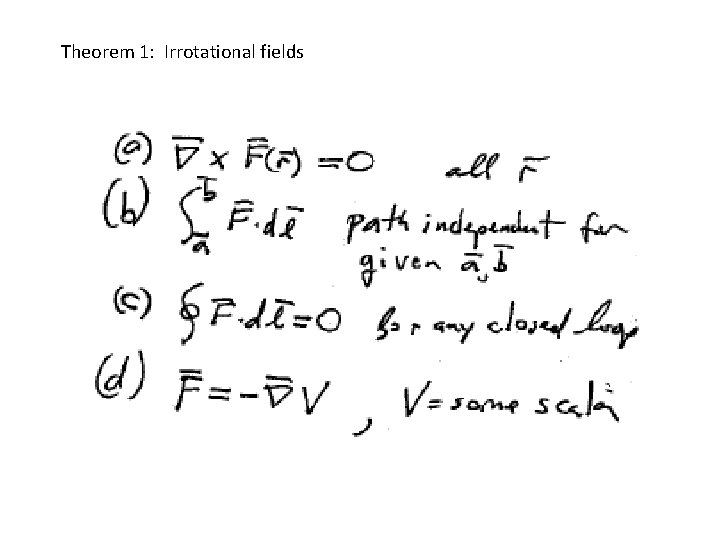 Theorem 1: Irrotational fields
(a) ∇̅ × F̅(r̅) = 0 all r̅
(b) ∫_a̅^b̅ F̅·dl̅ path independent for
given a̅, b̅
(c) ∮ F̅·dl̅ = 0 for any closed loop
(d) F̅ = -∇̅V, V = some scalar